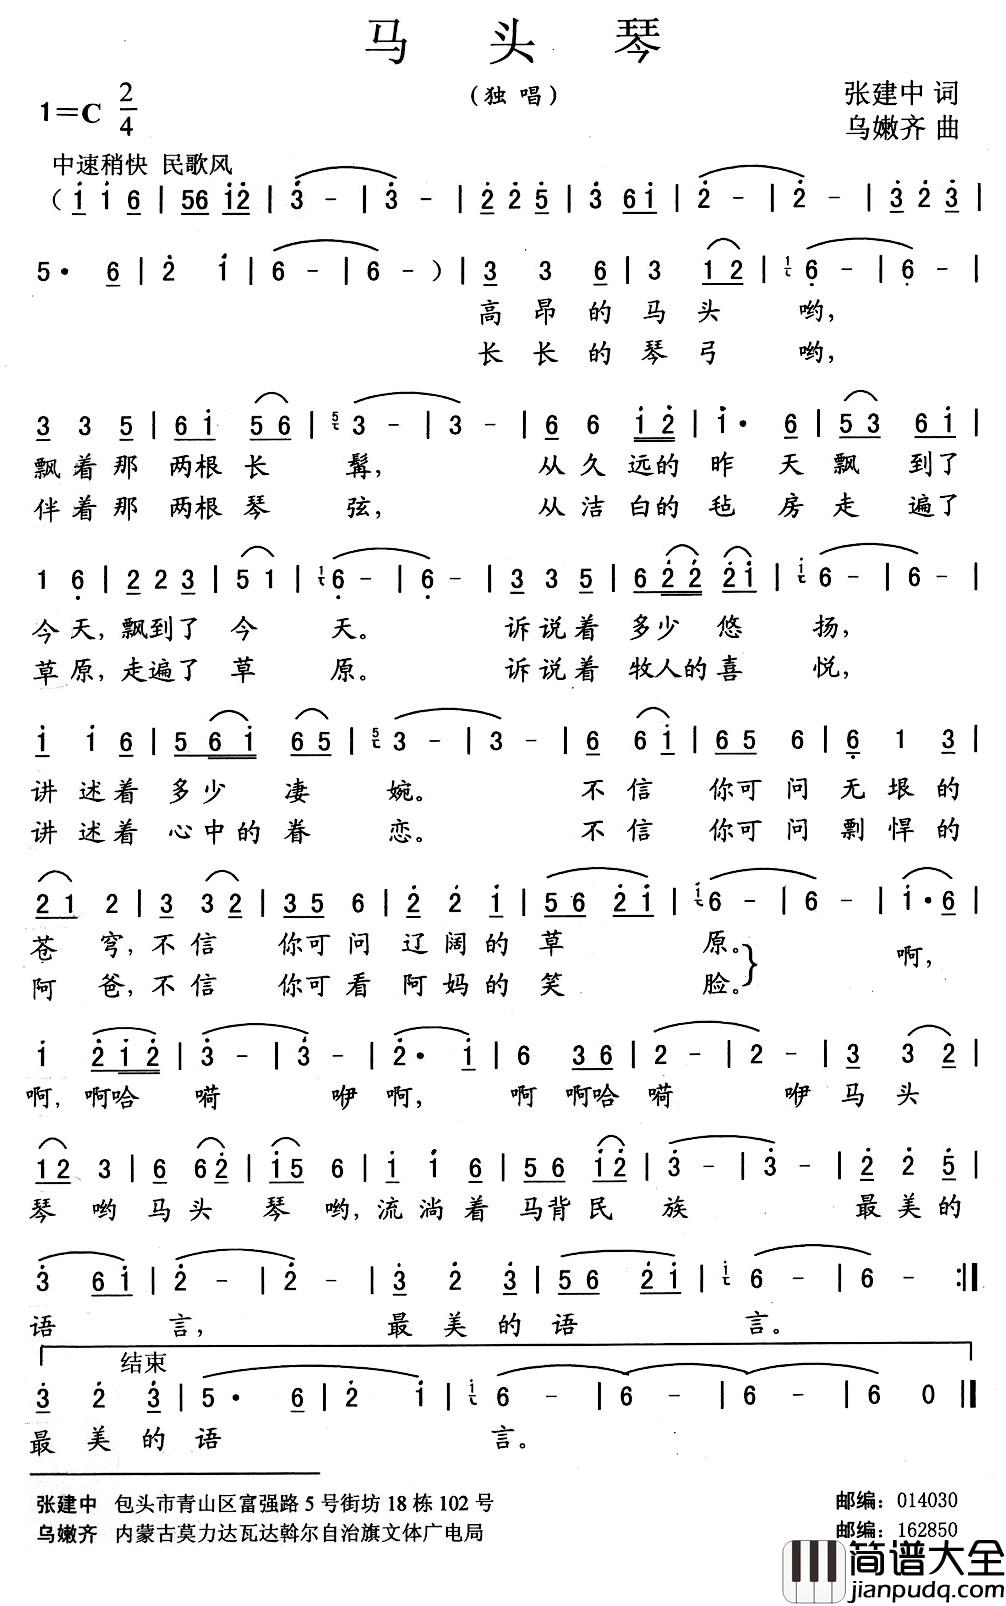 马头琴
（独唱）
1=C 2/4
张建中 词
乌嫩齐 曲
中速稍快 民歌风
( i i 6 | 56 i2 | 3 - | 3 - | 2 2 5 | 3 6i | 2 - | 2 - | 3 2 3 |
5· 6 | 2 i | 6 - | 6 - ) | 3 3 6 | 3 12 | 6 - | 6 - |
高昂的马头哟，
长长的琴弓哟，
3 3 5 | 6i 56 | 3 - | 3 - | 6 6 i2 | i· 6 | 53 6i |
飘着那两根长髯， 从久远的昨天飘到了
伴着那两根琴弦， 从洁白的毡房走遍了
1 6 | 2 2 3 | 5 1 | 6 - | 6 - | 3 3 5 | 622 2i | 6 - | 6 - |
今天，飘到了今天。 诉说着多少悠扬，
草原，走遍了草原。 诉说着牧人的喜悦，
i i 6 | 56i 65 | 3 - | 3 - | 6 6i | 65 6 | 6 1 3 |
讲述着多少凄婉。 不信你可问无垠的
讲述着心中的眷恋。 不信你可问剽悍的
21 2 | 3 32 | 35 6 | 2 2 i | 56 2i | 6 - | 6 - | i·6 |
苍穹，不信你可问辽阔的草原。 啊，
阿爸，不信你可看阿妈的笑脸。
i 2i2 | 3 - | 3 - | 2· i | 6 36 | 2 - | 2 - | 3 32 |
啊，啊哈嗬咿啊，啊啊哈嗬咿马头
12 3 | 6 62 | i5 6 | i i 6 | 56 i2 | 3 - | 3 - | 2 2 5 |
琴哟马头琴哟，流淌着马背民族 最美的
3 6i | 2 - | 2 - | 3 2 3 | 56 2i | 6 - | 6 - :|
语言， 最美的语言。
结束
3 2 3 | 5· 6 | 2 i | 6 - | 6 - | 6 - | 6 0 ||
最美的语言。
张建中 包头市青山区富强路5号街坊18栋102号 邮编：014030
乌嫩齐 内蒙古莫力达瓦达斡尔自治旗文体广电局 邮编：162850
简谱大全
jianpudq.com